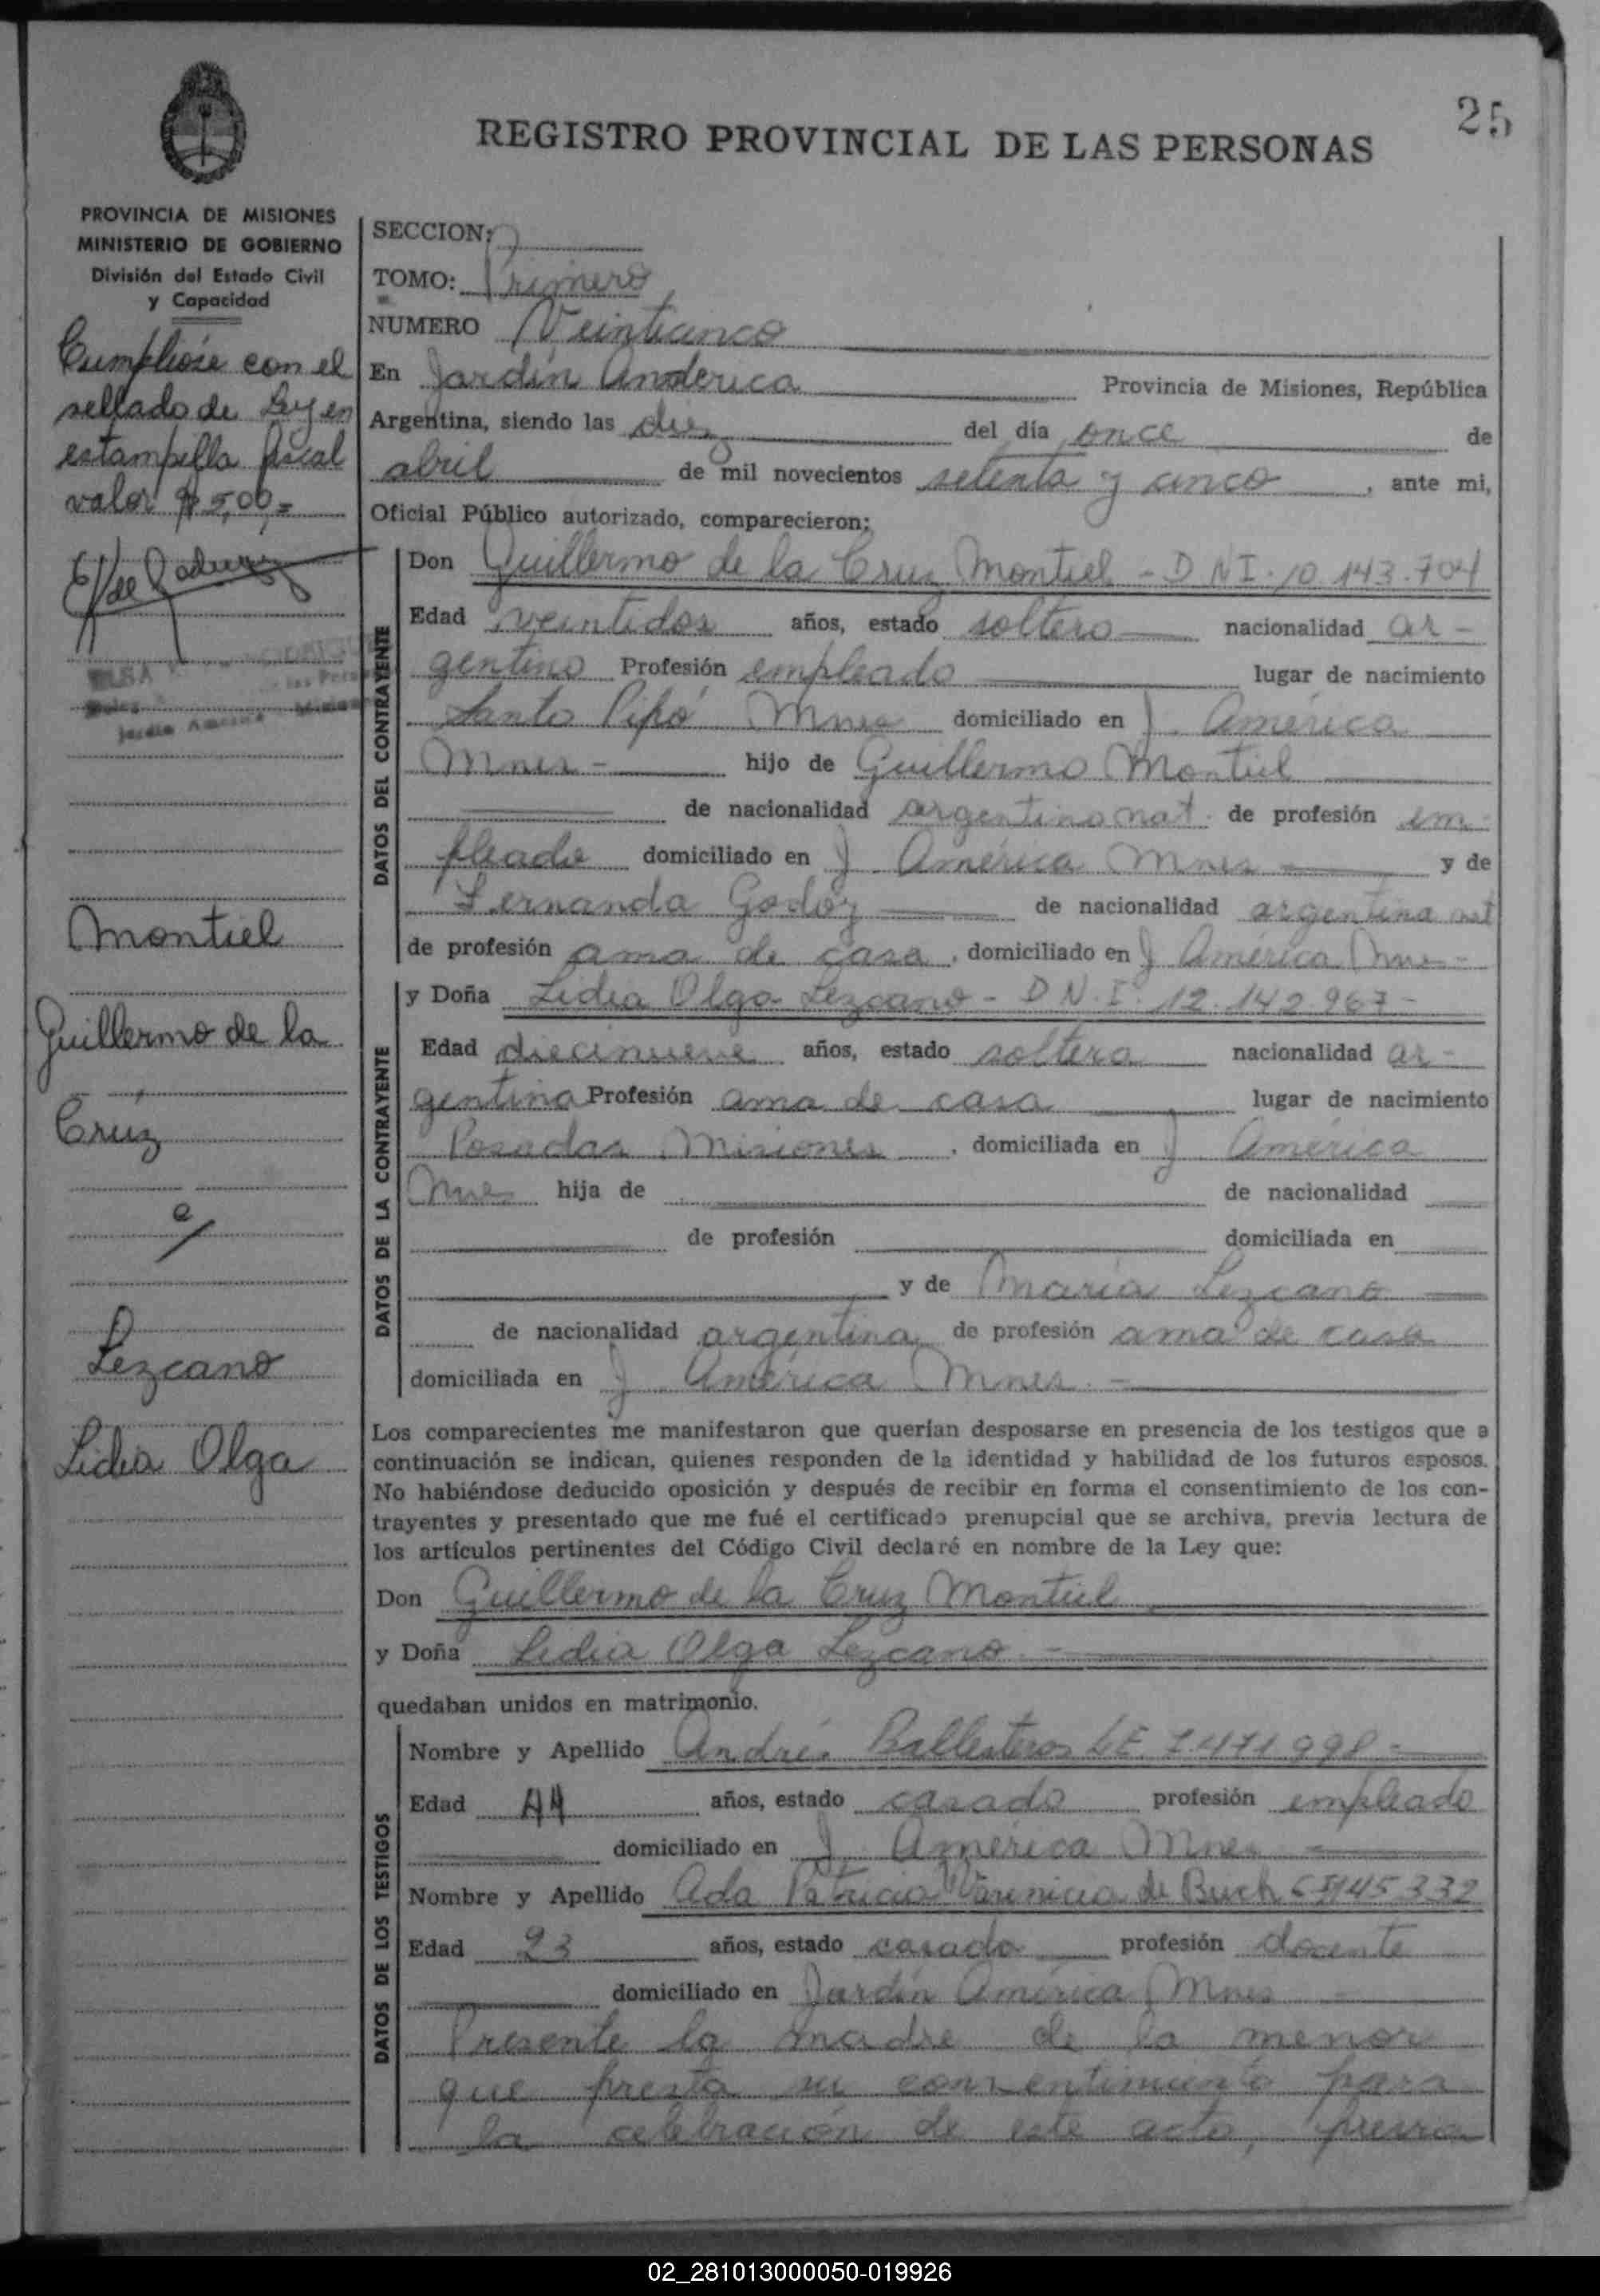 25
REGISTRO PROVINCIAL DE LAS PERSONAS
PROVINCIA DE MISIONES
MINISTERIO DE GOBIERNO
División del Estado Civil
y Capacidad
Cumplióse con el
sellado de Ley en
estampilla fiscal
valor $ 5,00,=
Jardín América
Montiel
Guillermo de la
Cruz
c/
Lezcano
Lidia Olga
SECCION:
TOMO: Primero
NUMERO Veinticinco
En Jardín América Provincia de Misiones, República
Argentina, siendo las diez del día once de
abril de mil novecientos setenta y cinco, ante mi,
Oficial Público autorizado, comparecieron:
DATOS DEL CONTRAYENTE
Don Guillermo de la Cruz Montiel - D N I. 10.143.704
Edad veintidos años, estado soltero nacionalidad ar-
gentino Profesión empleado lugar de nacimiento
Santo Pipó Mnes domiciliado en J. América
Mnes - hijo de Guillermo Montiel
de nacionalidad argentino nat. de profesión em-
pleado domiciliado en J América Mnes y de
Fernanda Godoy de nacionalidad argentina nat
de profesión ama de casa, domiciliado en J América Mnes -
DATOS DE LA CONTRAYENTE
y Doña Lidia Olga Lezcano - D N. I. 12.142.967 -
Edad diecinueve años, estado soltera nacionalidad ar-
gentina Profesión ama de casa lugar de nacimiento
Posadas Misiones, domiciliada en J. América
Mnes hija de de nacionalidad
de profesión domiciliada en
y de María Lezcano
de nacionalidad argentina de profesión ama de casa
domiciliada en J América Mnes. -
Los comparecientes me manifestaron que querían desposarse en presencia de los testigos que a
continuación se indican, quienes responden de la identidad y habilidad de los futuros esposos.
No habiéndose deducido oposición y después de recibir en forma el consentimiento de los con-
trayentes y presentado que me fué el certificado prenupcial que se archiva, previa lectura de
los artículos pertinentes del Código Civil declaré en nombre de la Ley que:
Don Guillermo de la Cruz Montiel
y Doña Lidia Olga Lezcano -
quedaban unidos en matrimonio.
DATOS DE LOS TESTIGOS
Nombre y Apellido Andrés Ballesteros LE 7.471.998 -
Edad 44 años, estado casado profesión empleado
domiciliado en J. América Mnes
Nombre y Apellido Ada Patricia de Buch 145332
Edad 23 años, estado casada profesión docente
domiciliado en Jardín América Mnes
Presente la madre de la menor
que presta su consentimiento para
la celebración de este acto, previa
02_281013000050-019926